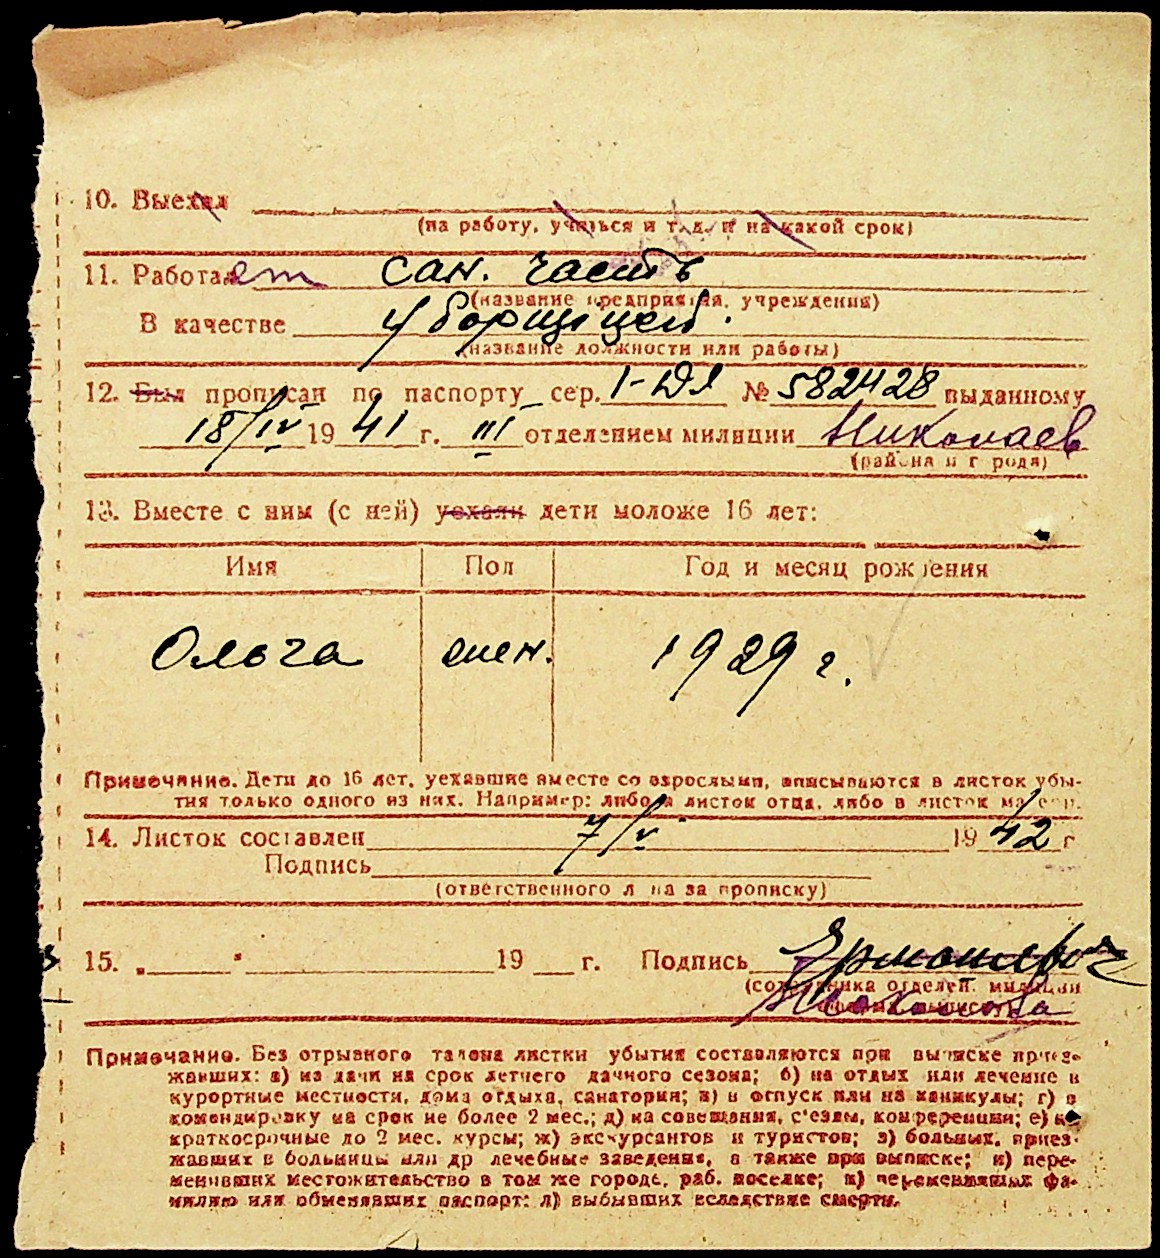 10. Выехал
(на работу, учиться и т. д. и на какой срок)
11. Работает сан. часть
(название предприятия, учреждения)
В качестве уборщицей.
(название должности или работы)
12. Был прописан по паспорту сер. I-ДЯ № 582428 выданному
18/IV 1941 г. III отделением милиции Николаев
(района и города)
13. Вместе с ним (с ней) уехали дети моложе 16 лет:
Имя Пол Год и месяц рождения
Ольга жен. 1929 г.
Примечание. Дети до 16 лет, уехавшие вместе со взрослыми, вписываются в листок убы-
тия только одного из них. Например: либо в листок отца, либо в листок матери.
14. Листок составлен 7/V 1942 г
Подпись
(ответственного лица за прописку)
15. „ " 19 г. Подпись Ермошевич
(сотрудника отделен. милиции
Примечание. Без отрывного талона листки убытия составляются при выписке приез-
жавших: а) из дачи на срок летнего дачного сезона; б) на отдых или лечение в
курортные местности, дома отдыха, санатории; в) в отпуск или на каникулы; г) в
командировку на срок не более 2 мес.; д) на совещания, с'езды, конференции; е) на
краткосрочные до 2 мес. курсы; ж) экскурсантов и туристов; з) больных, приез-
жавших в больницы или др лечебные заведения, а также при выписке; и) пере-
менивших местожительство в том же городе, раб. поселке; к) переменивших фа-
милию или обменявших паспорт; л) выбывших вследствие смерти.